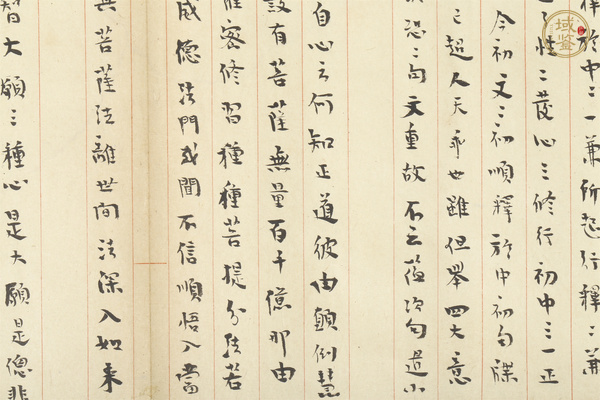 釋於中二一兼所起行釋二兼
性二發心三修行初中三一正
今初文三初順釋於中初句牒
二超人天乘也雖但舉四大意
恐二句文重故不云蘊次句過小
自心云何知正道彼由顛倒慧
設有菩薩無量百千億那由
密修習種種菩提分法若
威德法門或聞不信順悟入當
菩薩法離世間法深入如來
智大願三種心是大願是總悲
域鑒